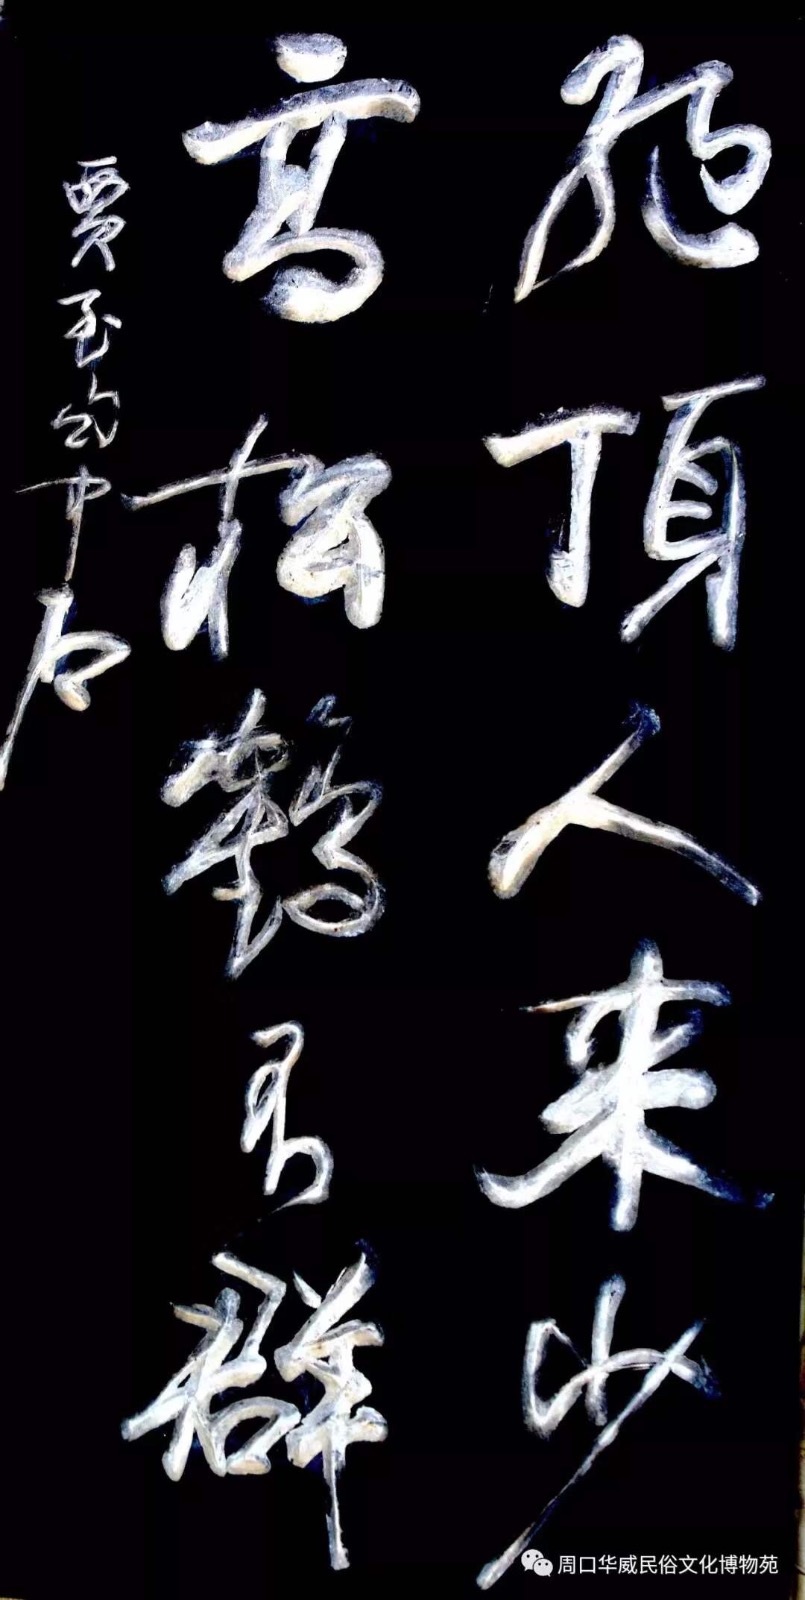 絶頂人来少
高松鶴不群
賈島句中石
周口华威民俗文化博物苑